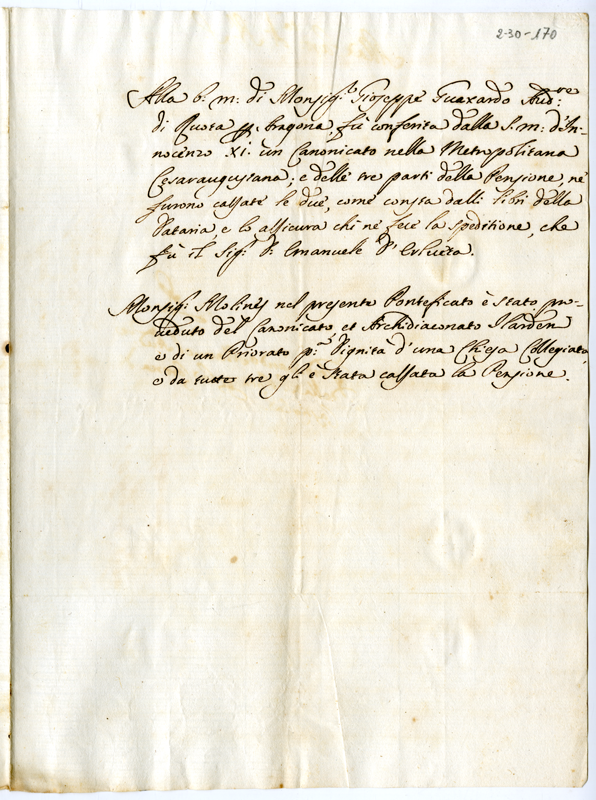 2-30-170
Alla b: m: di Monsig.r Gioseppe Guaxardo Aud:re
di Ruota p. Aragona, fù conferita dalla S. m: d'In-
nocenzo XI. un Canonicato nella Metropolitana
Cesaraugustana; e delle tre parti della Pensione né
furono cassate le due, come consta dalli libri della
Dataria, e lo assicura chi né fece la speditione, che
fù il Sig.r D. Emanuele D'
Monsig.r Molines nel presente Pontificato è stato pro-
veduto del Canonicato et Archidiaconato
e di un Priorato p.a Dignità d'una Chiesa Collegiata,
e da tutte tre gli è stata cassata la Pensione.